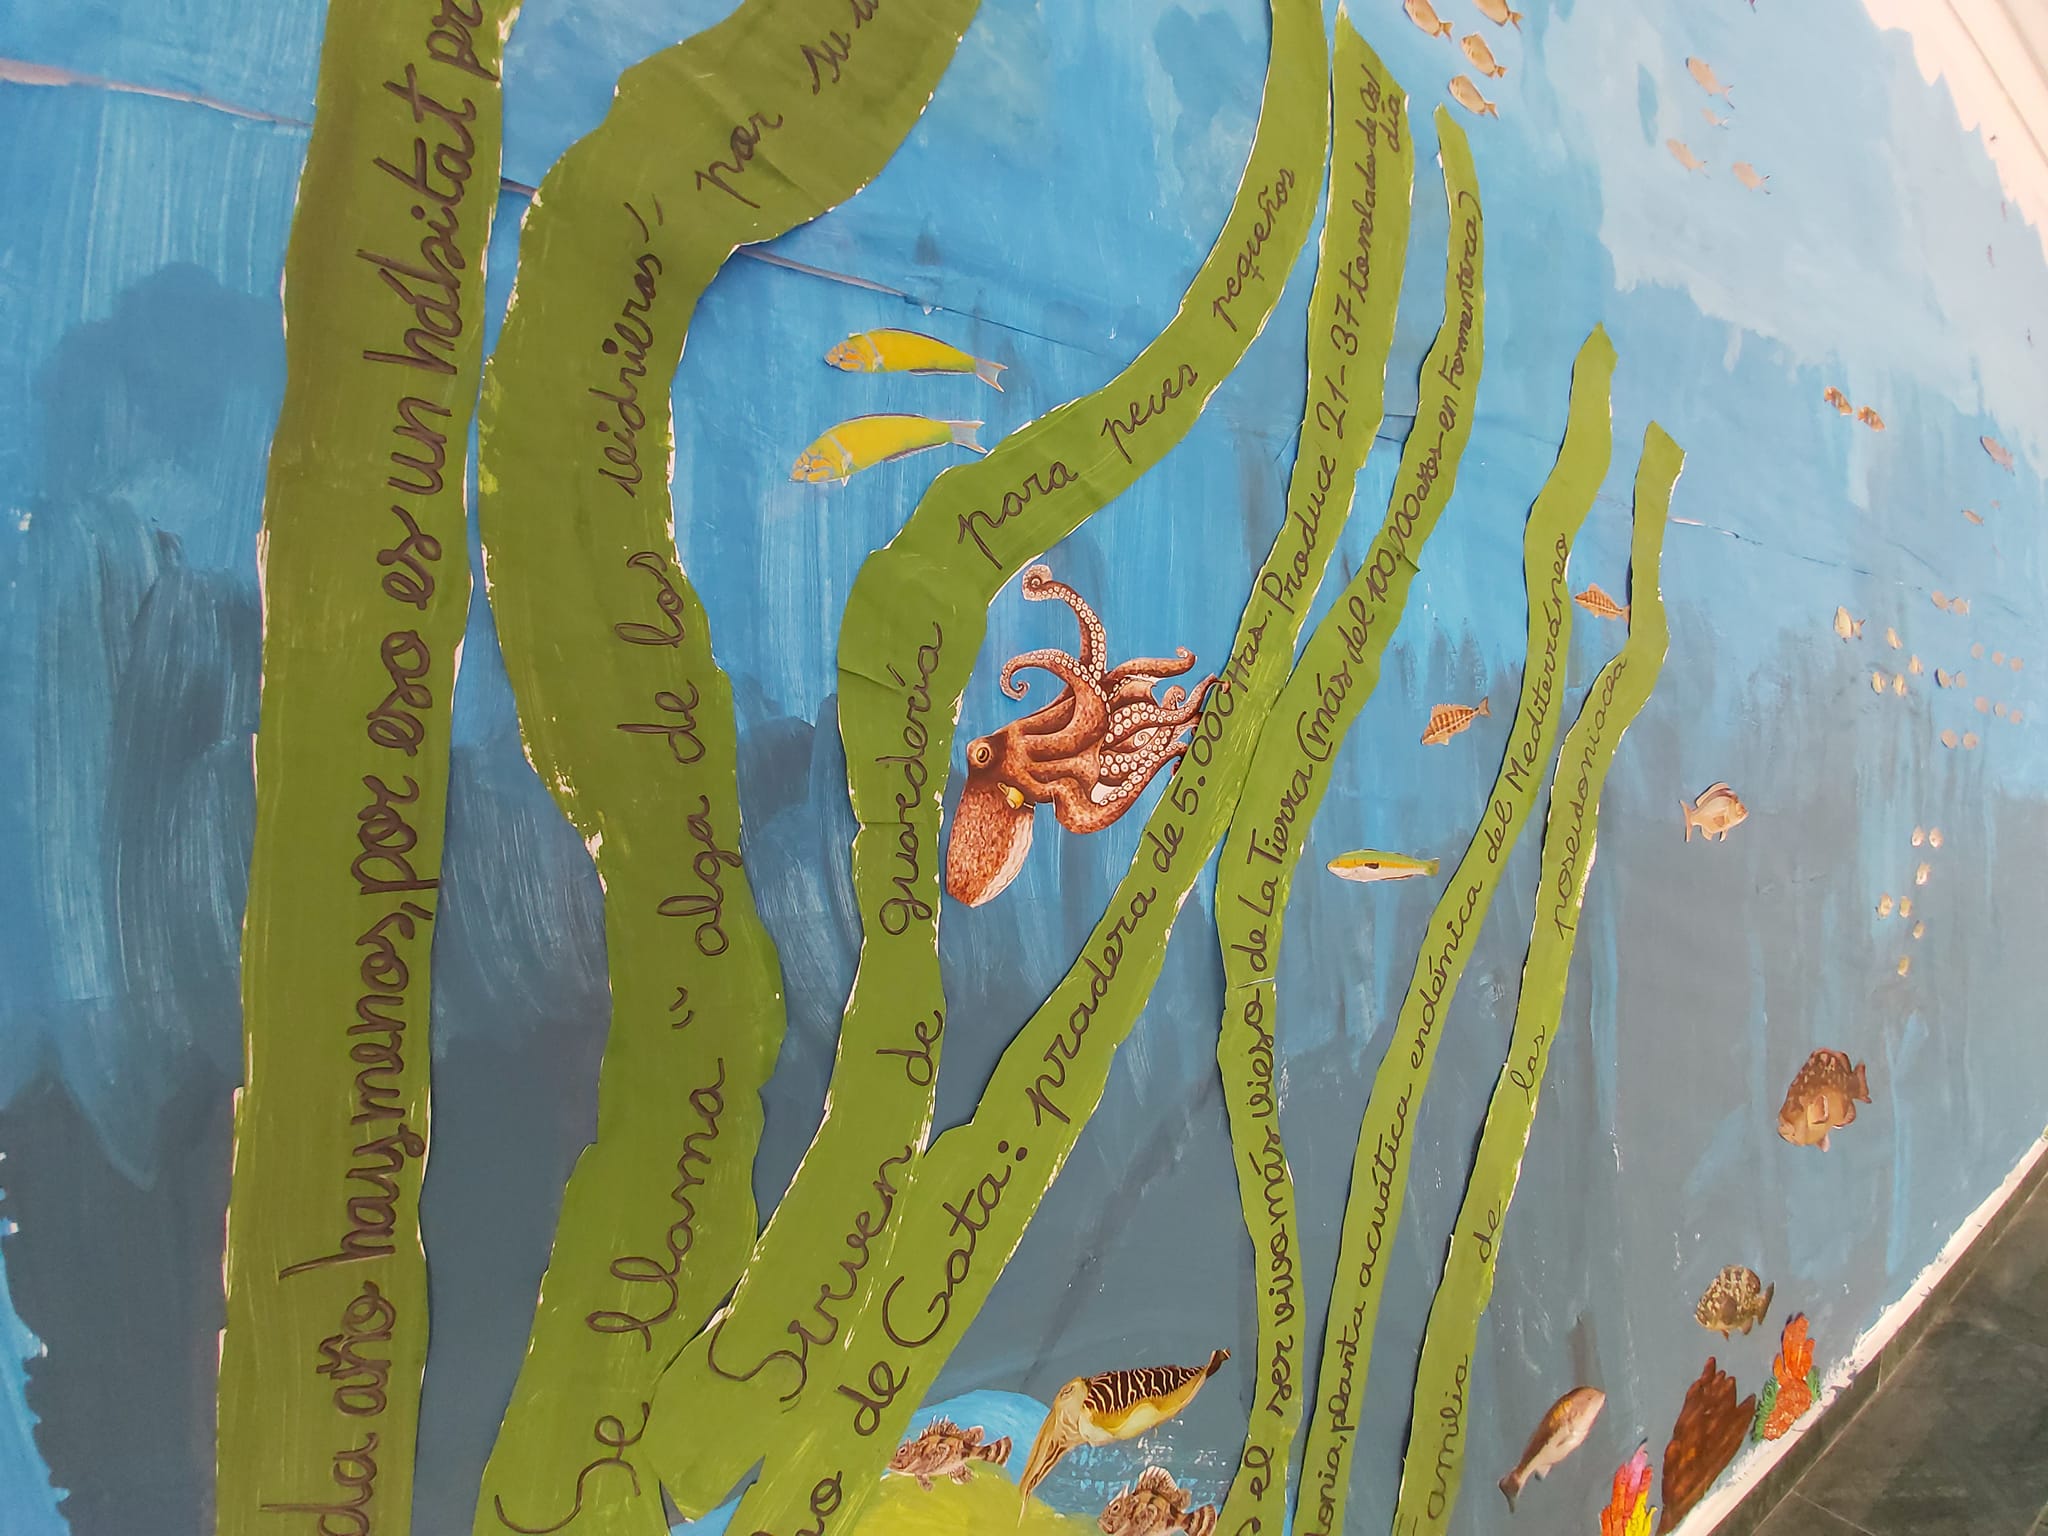 año hay menos, por eso es un hábitat
Se llama "alga de los vidrieros" por su
Sirven de guardería para peces pequeños
de Gata: pradera de 5.000 Htas. Produce 21-37 toneladas de O2/ día
el ser vivo más viejo de La Tierra (más del 100,000 años en Formentera)
planta acuática endémica del Mediterráneo
Familia de las poseidonicas